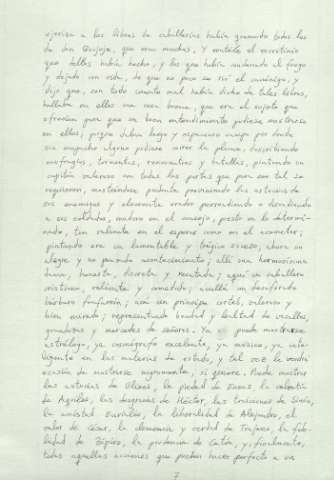 ojeriza a los libros de caballerías había quemado todos los
de don Quijote, que eran muchos, y contóle el escrutinio
que dellos había hecho, y los que había condenado al fuego
y dejado con vida, de que no poco se rió el canónigo, y
dijo que, con todo cuanto mal había dicho de tales libros,
hallaba en ellos una cosa buena, que era el sujeto que
ofrecían para que un buen entendimiento pudiese mostrarse
en ellos, porque daban largo y espacioso campo por donde
sin empacho alguno pudiese correr la pluma, describiendo
naufragios, tormentas, rencuentros y batallas, pintando un
capitán valeroso con todas las partes que para ser tal se
requieren, mostrándose prudente previniendo las astucias de
sus enemigos y elocuente orador persuadiendo o disuadiendo
a sus soldados, maduro en el consejo, presto en lo determi-
nado, tan valiente en el esperar como en el acometer;
pintando ora un lamentable y trágico suceso, ahora un
alegre y no pensado acontecimiento; allí una hermosísima
dama, honesta, discreta y recatada; aquí un caballero
cristiano, valiente y comedido; acullá un desaforado
bárbaro fanfarrón; acá un príncipe cortés, valeroso y
bien mirado; representando bondad y lealtad de vasallos,
grandezas y mercedes de señores. Ya puede mostrarse
astrólogo, ya cosmógrafo excelente, ya músico, ya inte-
ligente en las materias de estado, y tal vez le vendrá
ocasión de mostrarse nigromante, si quisiere. Puede mostrar
las astucias de Ulises, la piedad de Eneas, la valentía
de Aquiles, las desgracias de Héctor, las traiciones de Sinón,
la amistad Eurialio, la liberalidad de Alejandro, el
valor de César, la clemencia y verdad de Trajano, la fide-
lidad de Zópiro, la prudencia de Catón, y, finalmente,
todas aquellas acciones que pueden hacer perfecto a un
7